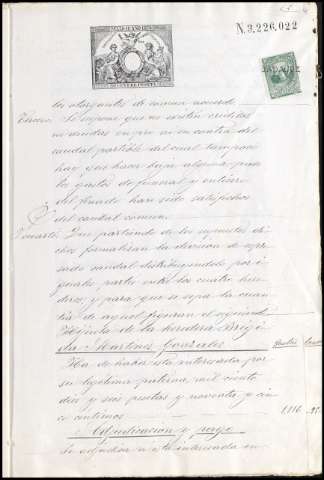 N.3,226,022
los otorgantes de comun acuerdo
Tercero. Se supone que no existen creditos
ni deudas en pro ni en contra del
caudal partible del cual tampoco
hay que hacer baja alguna, pues
los gastos de funeral y entierro
del finado han sido satisfechos
del caudal comun.
Cuarto. Que partiendo de los supuestos di-
chos formalizan la division de expre-
sado caudal distribuyendolo por i-
guales partes entre los cuatro here-
deros, y para que se sepa la cuan-
tia de aquel figuran el siguiente
Hijuela de la heredera Brigi-
da Martinez Gonzalez
Ha de haber esta interesada por
su legitima paterna, mil ciento
diez y seis pesetas y noventa y cin-
co centimos
1,116
Adjudicacion y pago
Se adjudica a esta interesada en